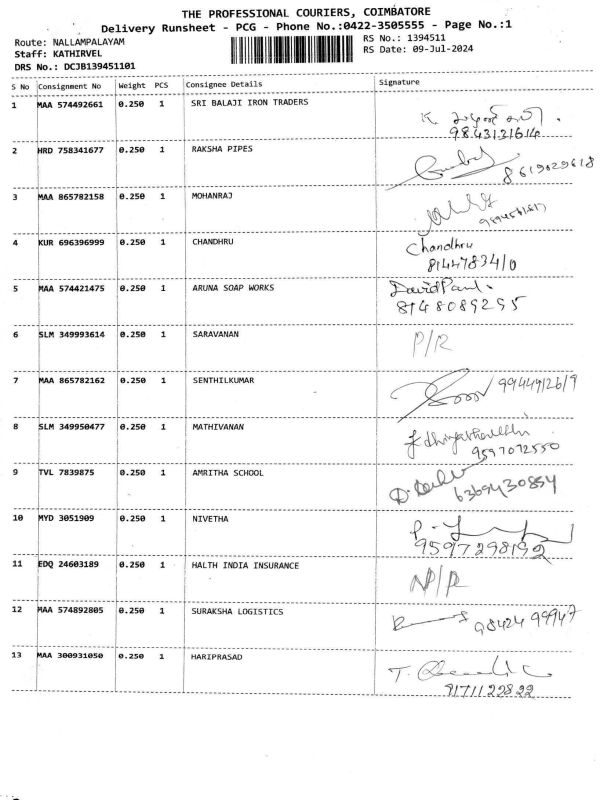 THE PROFESSIONAL COURIERS, COIMBATORE
Delivery Runsheet - PCG - Phone No.:0422-3505555 - Page No.:1
Route: NALLAMPALAYAM
RS No.: 1394511
Staff: KATHIRVEL
RS Date: 09-Jul-2024
DRS No.: DCJB139451101
S No Consignment No Weight PCS Consignee Details Signature
1 MAA 574492661 0.250 1 SRI BALAJI IRON TRADERS
K.
9843131614
2 HRD 758341677 0.250 1 RAKSHA PIPES
8619029618
3 MAA 865782158 0.250 1 MOHANRAJ
4 KUR 696396999 0.250 1 CHANDHRU
Chandhru
8144783410
5 MAA 574421475 0.250 1 ARUNA SOAP WORKS
David Paul.
8148089295
6 SLM 349993614 0.250 1 SARAVANAN
P/R
7 MAA 865782162 0.250 1 SENTHILKUMAR
9944912619
8 SLM 349950477 0.250 1 MATHIVANAN
9597072550
9 TVL 7839875 0.250 1 AMRITHA SCHOOL
6369430854
10 MYD 3051909 0.250 1 NIVETHA
9597298192
11 EDQ 24603189 0.250 1 HALTH INDIA INSURANCE
NP/R
12 MAA 574892805 0.250 1 SURAKSHA LOGISTICS
98424 99947
13 MAA 300931050 0.250 1 HARIPRASAD
T.
9171122822